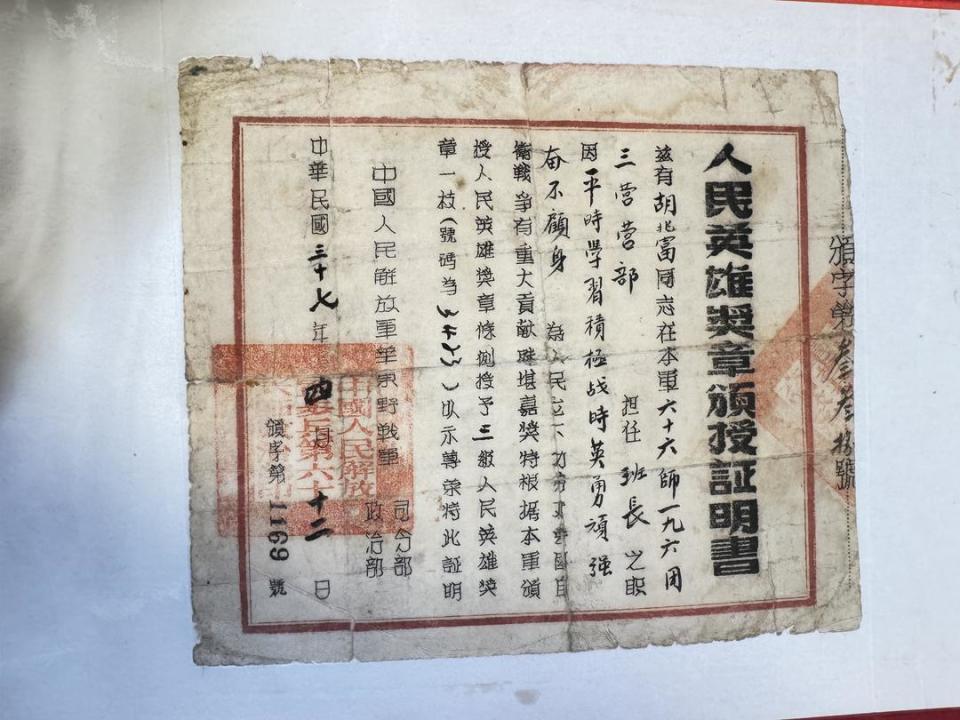 頒字第叁叁拾號
人民英雄獎章頒授証明書
茲有胡兆富同志在本軍六十六師一九六团
三营营部 担任 班長 之职
因平時学習積極战時英勇頑强
奋不顧身 為人民立 功 自
衛戰爭有重大貢献殊堪嘉獎特根据本軍頒
授人民英雄獎章條例授予三級人民英雄獎
章一枝(號碼為 )以示尊荣特此証明
中國人民解放軍華東野戰軍 司令部
政治部
中華民國三十七年四月十二日
頒字第1169號
中國人民解放
第六十